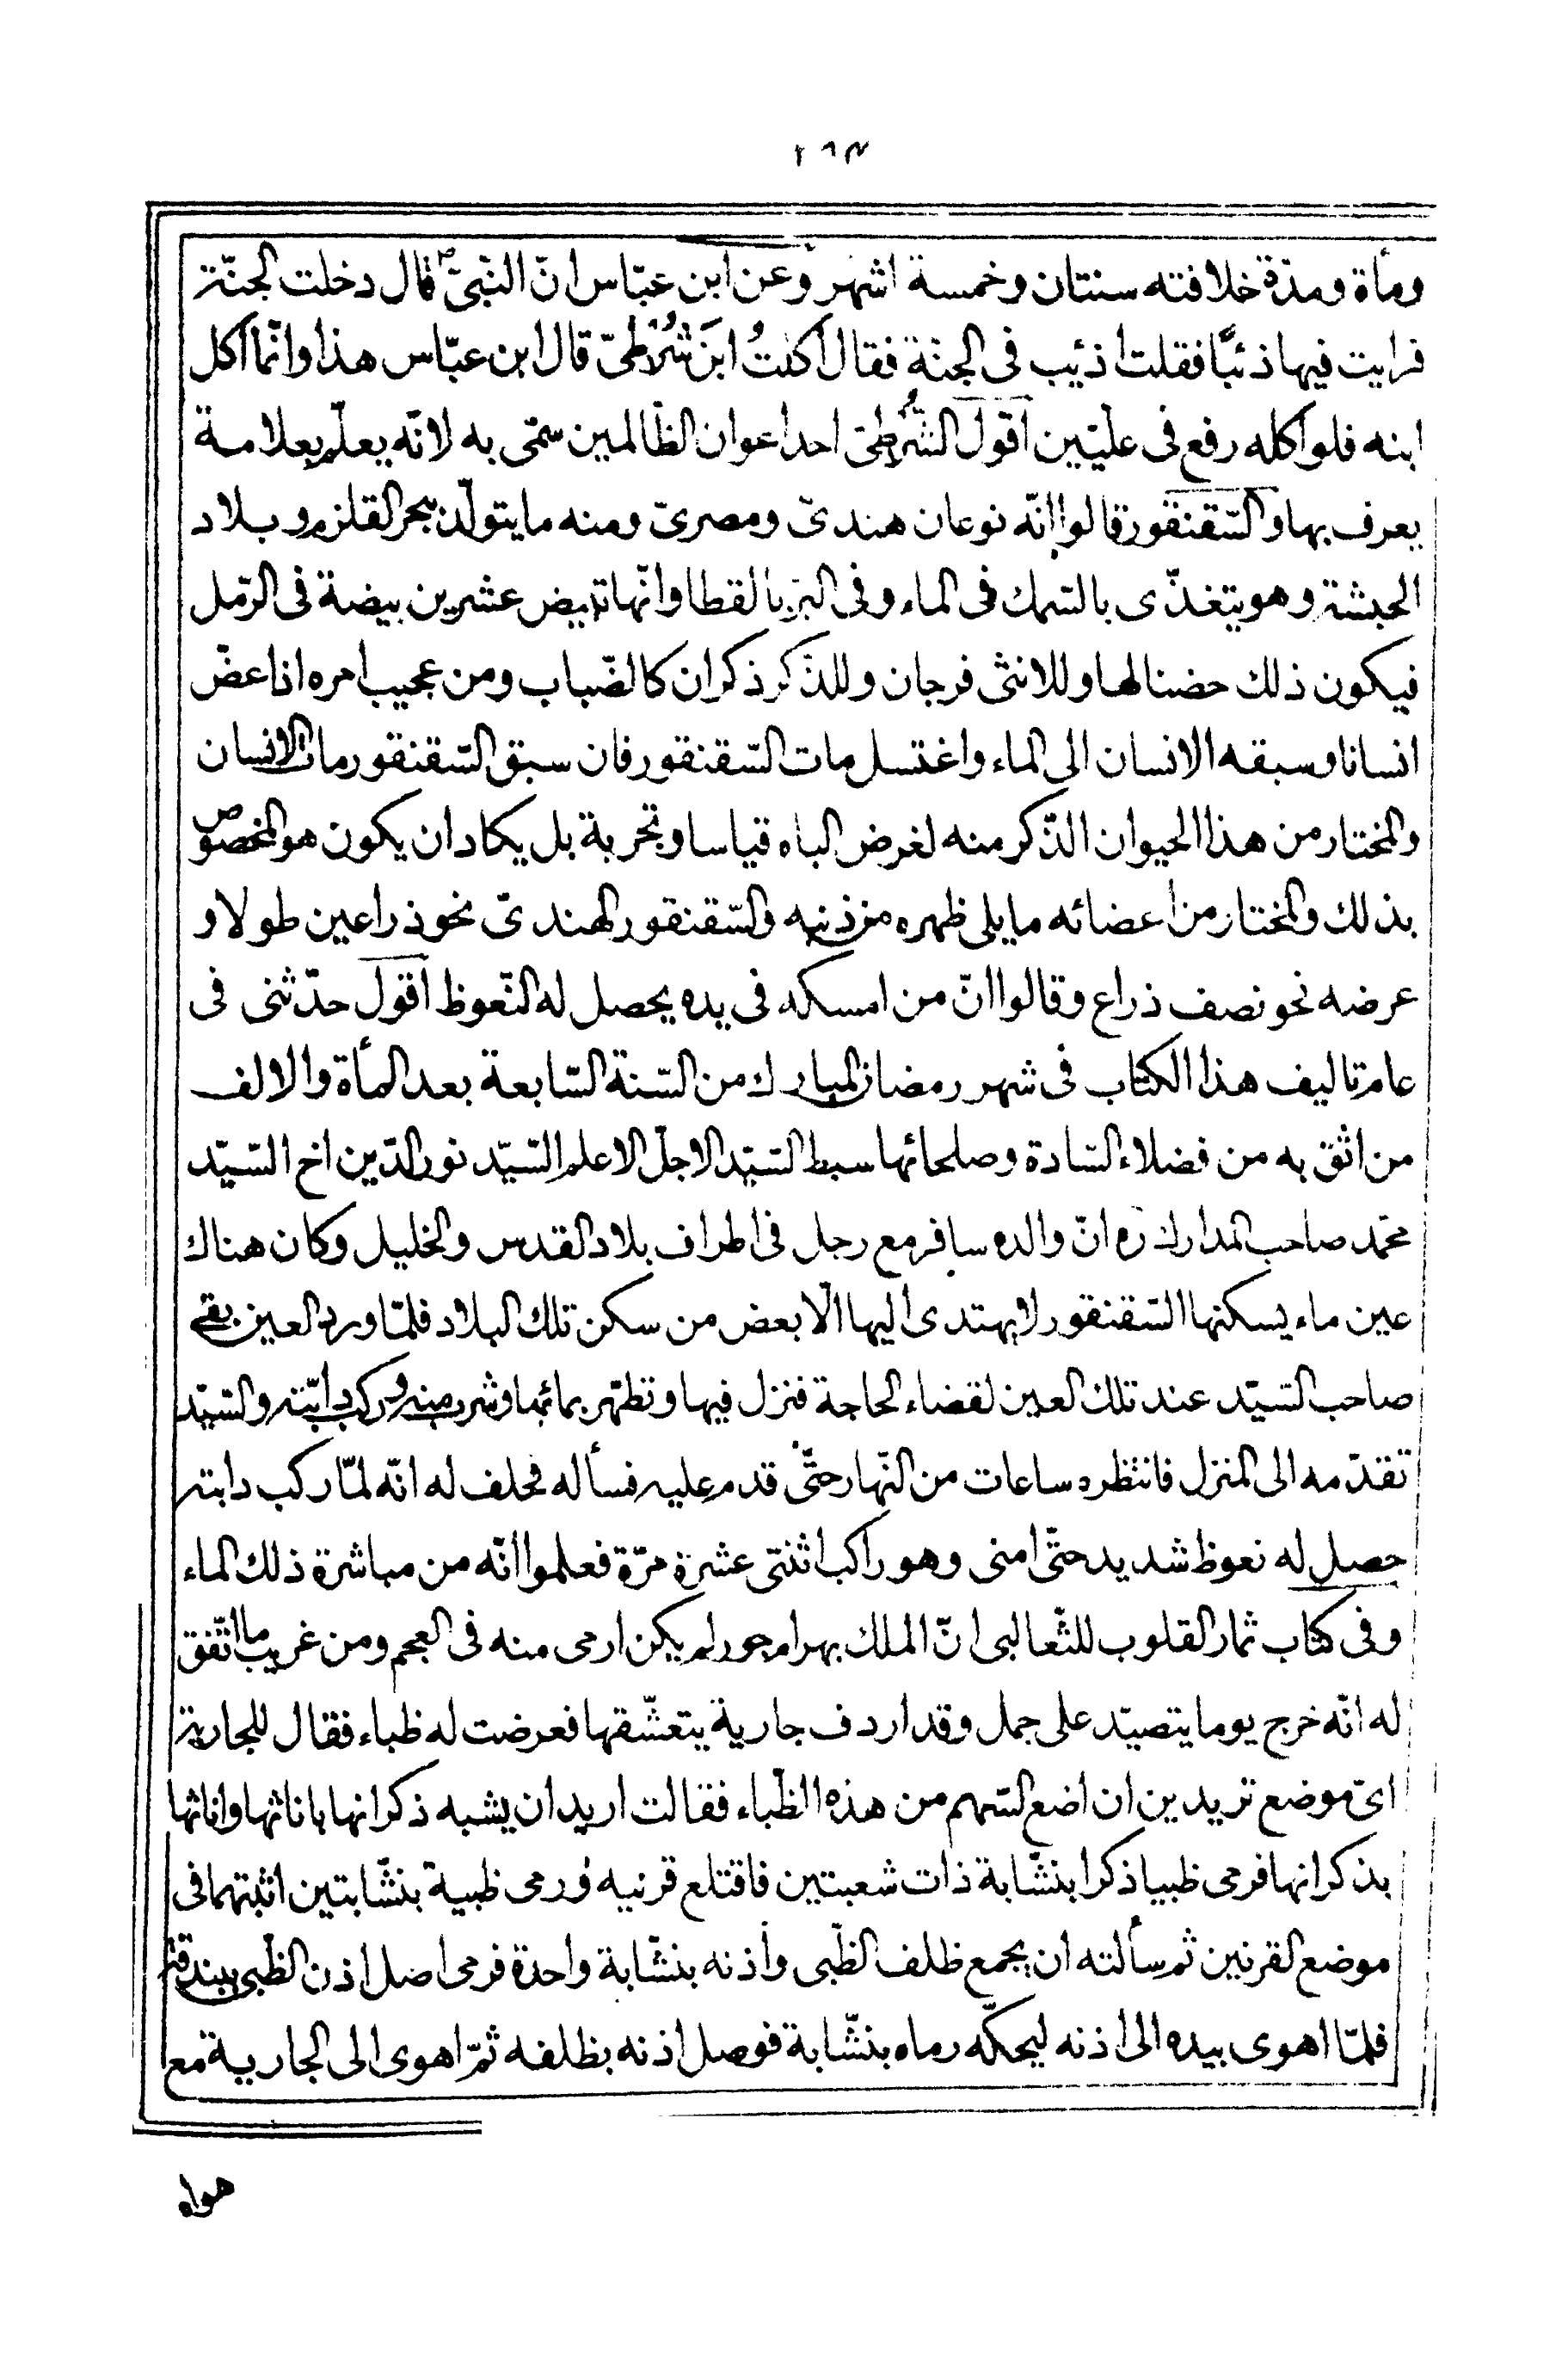 ومأة ومدّة خلافته سنتان وخمسة اشهر وعن ابن عبّاس انّ النّبيّ ص قال دخلت الجنّة
فرايت فيها ذئبًا فقلت اذئب في الجنّة فقال اكلتُ ابنَ شُرطيّ قال ابن عبّاس هذا وانّما اكل
ابنه فلو اكله رفع في علّيّين اقول الشُّرطيّ احد اعوان الظّالمين سمّى به لانّه يعلّم بعلامة
يعرف بها والسّقنقور قالوا انّه نوعان هنديّ ومصريّ ومنه ما يتولّد ببحر القلزم وبلاد
الحبشة وهو يتغذّى بالسّمك في الماء وفي البرّ بالقطا وانّها تبيض عشرين بيضة في الرّمل
فيكون ذلك حضنا لها وللانثى فرجان وللذّكر ذكران كالضّباب ومن عجيب امره اذا عضّ
انسانا وسبقه الانسان الى الماء واغتسل مات السّقنقور فان سبق السّقنقور مات الانسان
والمختار من هذا الحيوان الذّكر منه لغرض الباه قياسا وتجربة بل يكاد ان يكون هو المخصوص
بذلك والمختار من اعضائه ما يلى ظهره من ذنبه والسّقنقور الهنديّ نحو ذراعين طولا و
عرضه نحو نصف ذراع وقالوا انّ من امسكه في يده يحصل له النّعوظ اقول حدّثنى في
عام تاليف هذا الكتاب في شهر رمضان المبارك من السّنة السّابعة بعد المأة والالف
من اثق به من فضلاء السّادة وصلحائها سبط السّيّد الاجلّ الاعلم السّيّد نور الدّين اخ السّيّد
محمّد صاحب المدارك ره انّ والده سافر مع رجل في اطراف بلاد القدس والخليل وكان هناك
عين ماء يسكنها السّقنقور لا يهتدى اليها الّا بعض من سكن تلك البلاد فلمّا ورد العين بقى
صاحب السّيّد عند تلك العين لقضاء الحاجة فنزل فيها وتطهّر بمائها وشرب منه وركب دابّته والسّيّد
تقدّمه الى المنزل فانتظره ساعات من النّهار حتّى قدم عليه فسأله فحلف له انّه لمّا ركب دابته
حصل له نعوظ شديد حتّى امنى وهو راكب اثنتى عشرة مرّة فعلموا انّه من مباشرة ذلك الماء
وفي كتاب ثمار القلوب للثّعالبى انّ الملك بهرام جور لم يكن ارمى منه في العجم ومن غريب ما اتّفق
له انّه خرج يوما يتصيّد على جمل وقد اردف جارية يتعشّقها فعرضت له ظباء فقال للجارية
اىّ موضع تريدين ان اضع السّهم من هذه الظّباء فقالت اريد ان يشبه ذكرانها باناثها واناثها
بذكرانها فرمى ظبيا ذكرا بنشّابة ذات شعبتين فاقتلع قرنيه ورمى ظبية بنشّابتين اثبتهما في
موضع القرنين ثم سألته ان يجمع ظلف الظّبى وأذنه بنشّابة واحدة فرمى اصل اذن الظّبى ببندقة
فلمّا اهوى بيده الى اذنه ليحكّه رماه بنشّابة فوصل اذنه بظلفه ثمّ اهوى الى الجارية مع
هواه